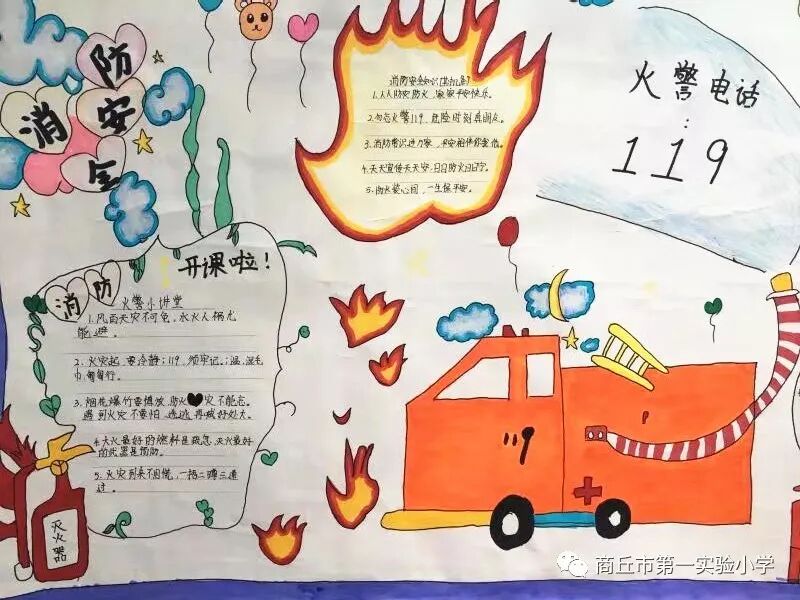 消防安全
消防安全知识
1.人人防灾防火,家家平安快乐。
2.勿忘火警119,危险时刻真朋友。
3.消防常识进万家,平安相伴你我他。
4.天天宣传天天安,日日防火日日宁。
5.防火装心间,一生保平安。
火警电话:
119
消防开课啦!
火警小讲堂
1.风雨天灾不可免,水火人祸尤
能避。
2.火灾起,要冷静;119,须牢记。;湿毛
巾,匍匐行。
3.烟花爆竹要慎放,防火灾不能忘。
遇到火灾不要怕,逃
4.大火最好的燃料是疏忽,灭火最好
的武器是预防。
5.火灾到来不用慌,一捂二蹲三逃
过。
灭火器
119
商丘市第一实验小学